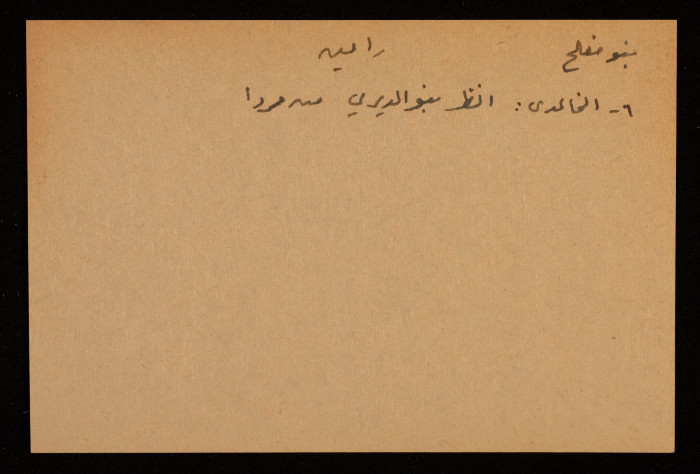 بنو مفلح رامين
٦- الخالدي: انظر بنو الديري من مردا